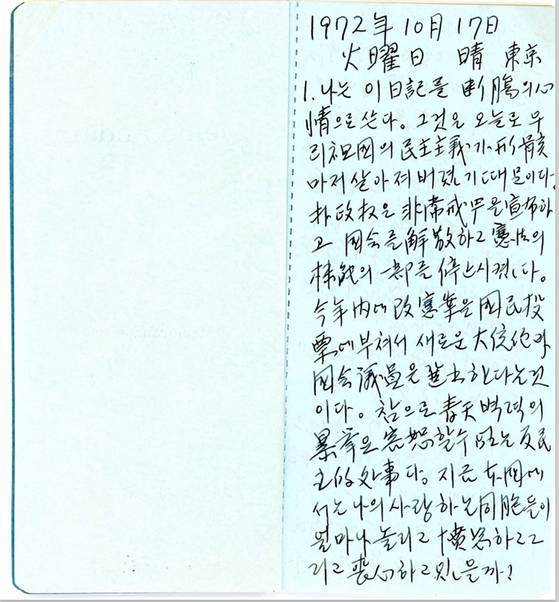 1972年 10月 17日
火曜日 晴 東京
1. 나는 이 日記를 断腸의 心
情으로 쓴다. 그것은 오늘로 우
리 祖國의 民主主義가 形骸
마저 살아져 버렸기 때문이다.
朴政权은 非常戒严을 宣布하
고 国会를 解散하고 憲法의
機能의 一部를 停止시켰다.
今年内에 改憲案을 国民投
票에 부쳐서 새로운 大统伈과
国会議員을 선출한다는 것
이다. 참으로 青天벽력의
暴挙요 容恕할 수 없는 反民
主的 处事다. 지금 本国에
서는 나의 사랑하는 同胞들이
얼마나 놀라고 憤怒하고 그
리고 喪心하고 있을까?